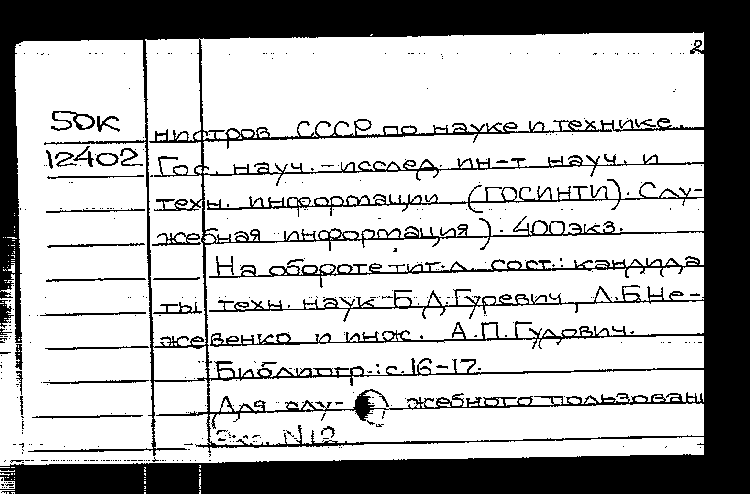 2
50К
12402
нистров СССР по науке и технике.
Гос. науч.-исслед. ин-т науч. и
техн. информации (ГОСИНТИ). Слу-
жебная информация). 400экз.
На обороте тит. л. сост.: кандида
ты техн. наук Б.Д.Гуревич, Л.Б.Не-
жевенко и инж. А.П.Гудович.
Библиогр.: с.16-17.
Для слу- жебного пользовани
Экз. N12